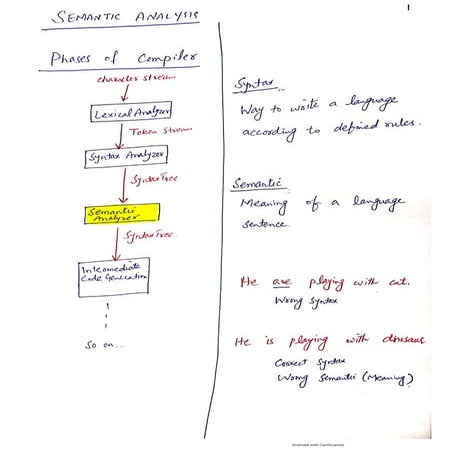 SEMANTIC ANALYSIS
1
Phases of Compiler
character stream
Lexical Analyzer
Token Stream
Syntax Analyzer
Syntax Tree
Semantic
Analyzer
Syntax Tree
Intermediate
Code Generation
So on...
Syntax
Way to write a language
according to defined rules.
Semantic
Meaning of a language
sentence
He are playing with cat.
Wrong Syntax
He is playing with
Correct Syntax
Wrong Semantic (Meaning)
Scanned with CamScanner